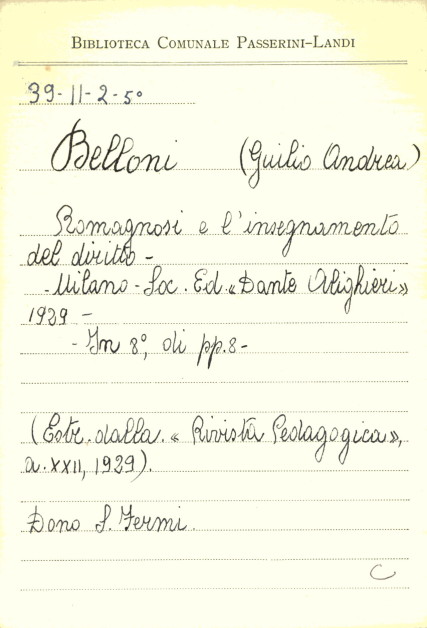 BIBLIOTECA COMUNALE PASSERINI-LANDI
39-11-2-5°
Belloni (Guilio Andrea)
Romagnosi e l'insegnamento
del diritto -
- Milano - Soc. Ed. «Dante Alighieri»
1929 -
- In 8°, di pp. 8 -
(Estr. dalla « Rivista Pedagogica»,
a. XXII, 1929).
Dono S. Fermi.
C